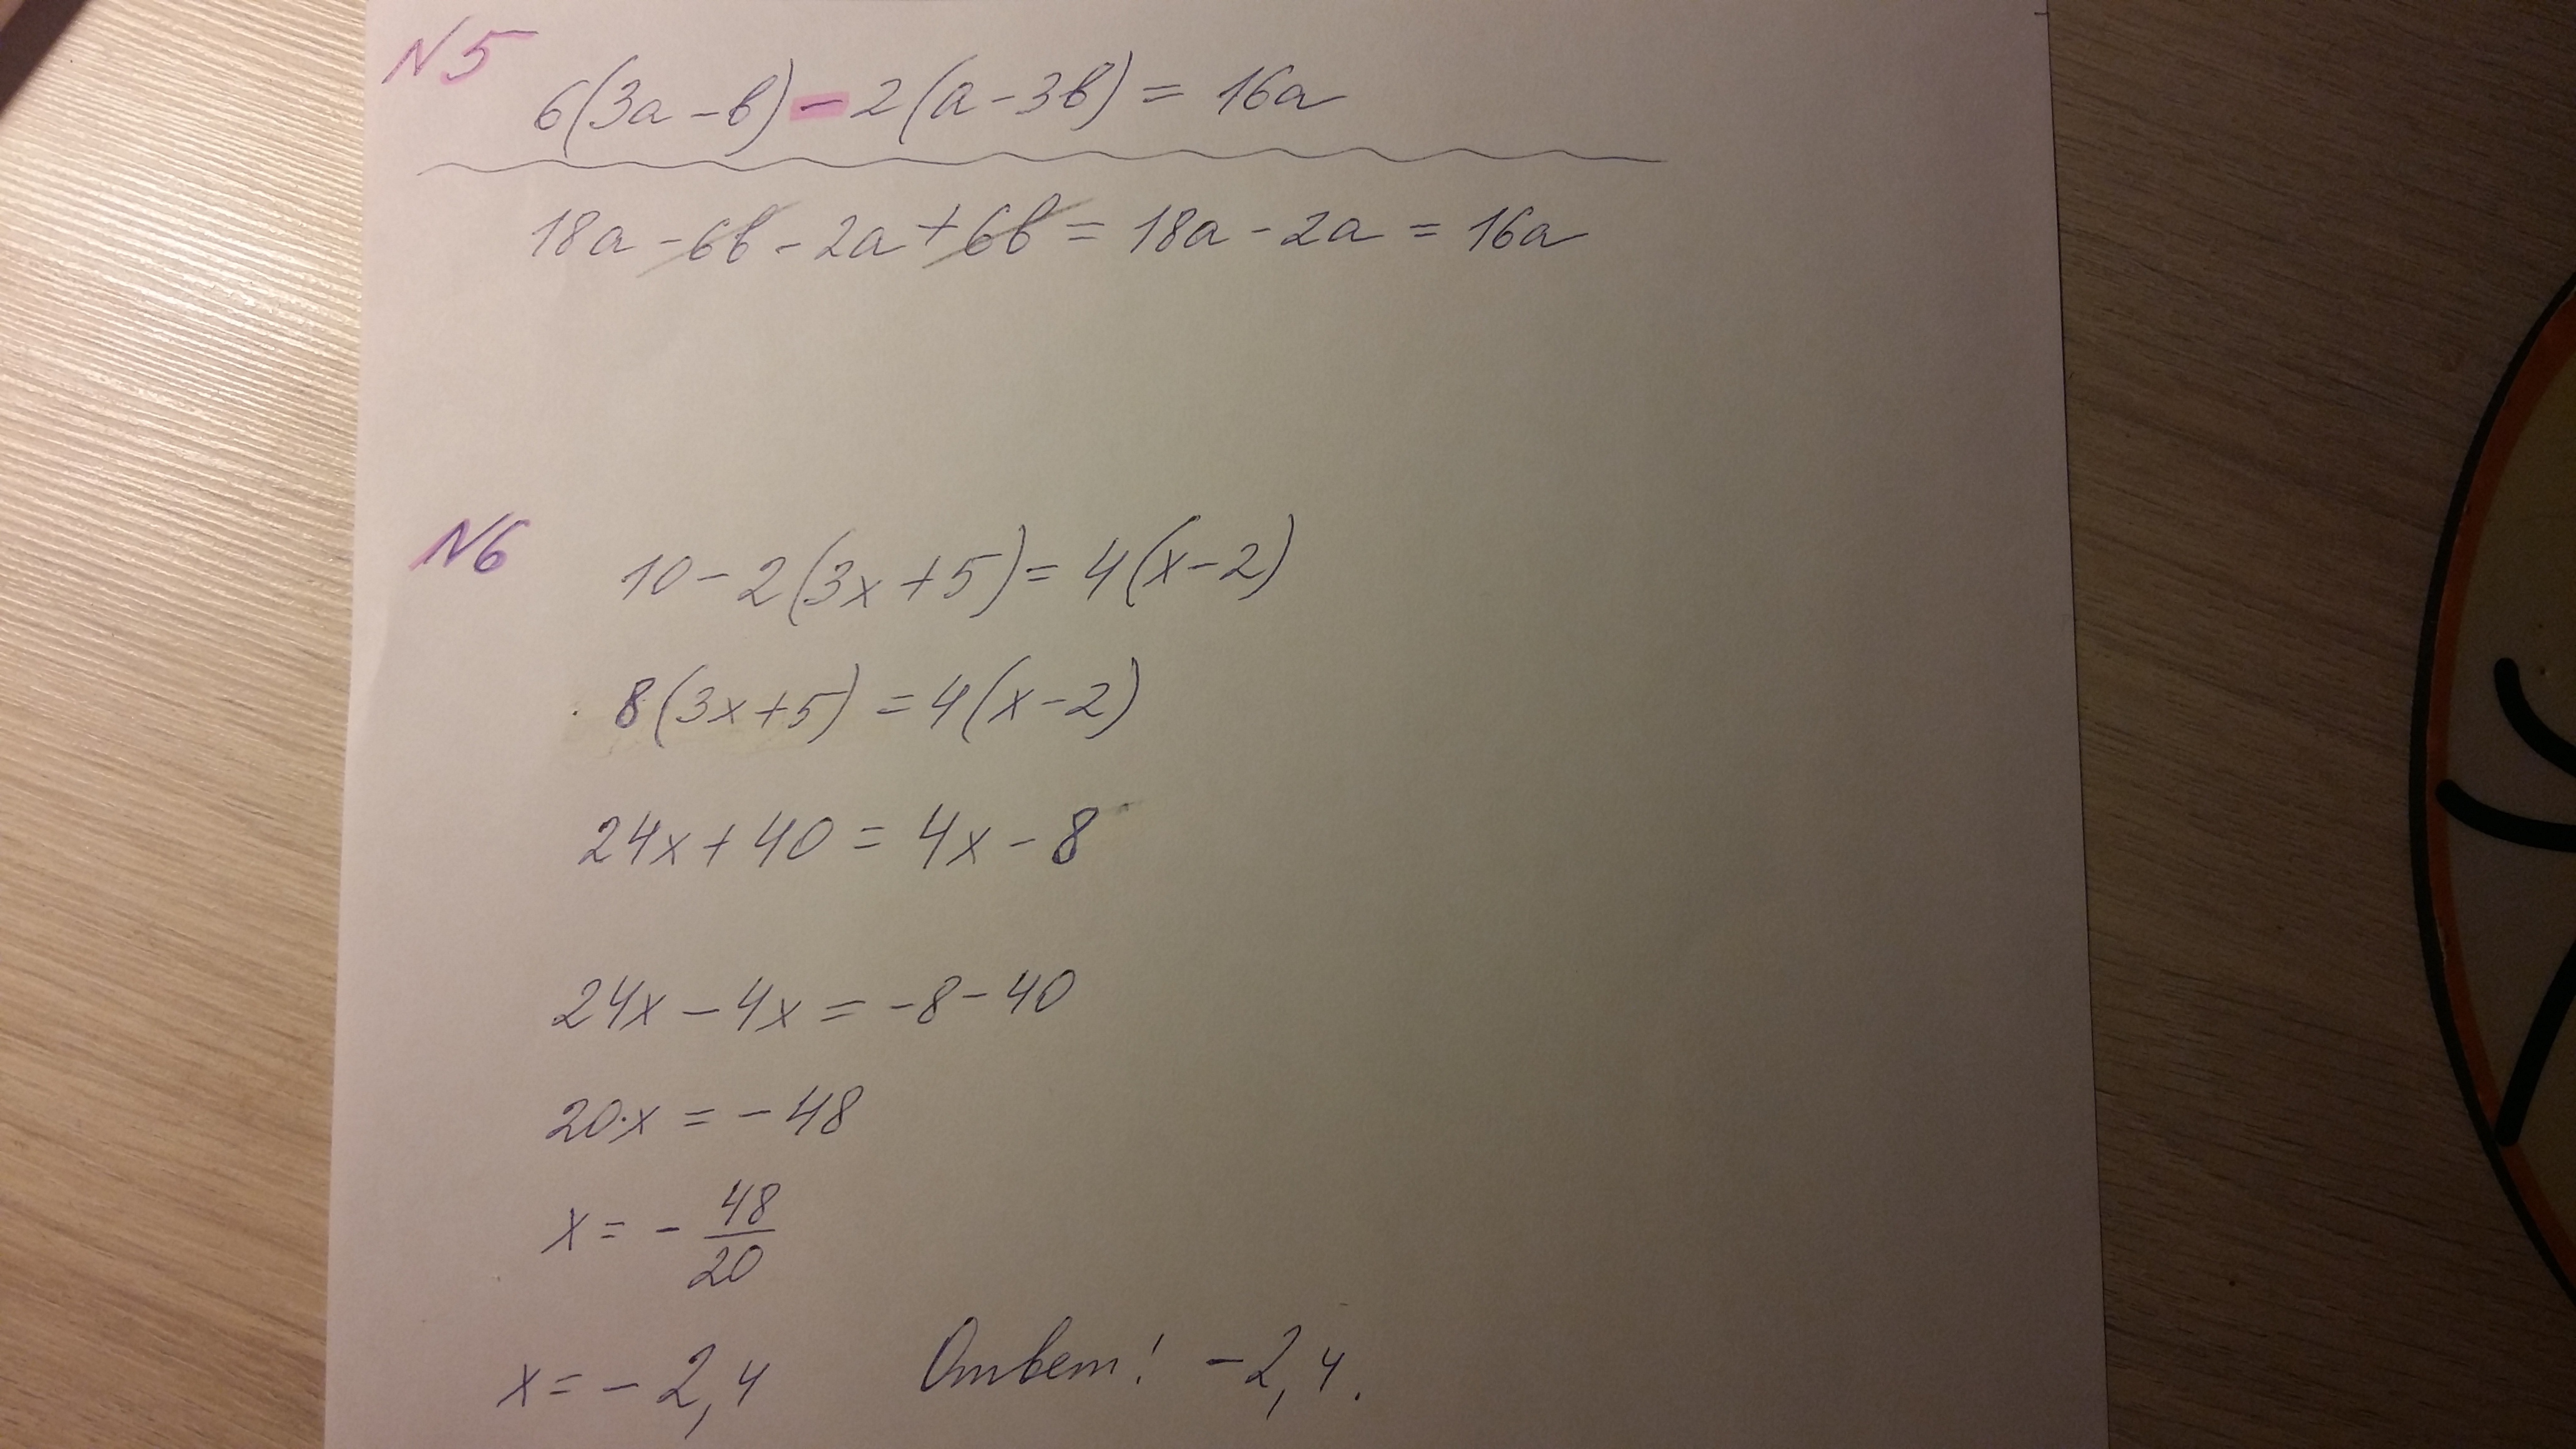 N5
6(3a-b)-2(a-3b)=16a
18a-6b-2a+6b=18a-2a=16a
N6
10-2(3x+5)=4(x-2)
8(3x+5)=4(x-2)
24x+40=4x-8
24x-4x=-8-40
20·x=-48
x=-48/20
x=-2,4 Ответ: -2,4.